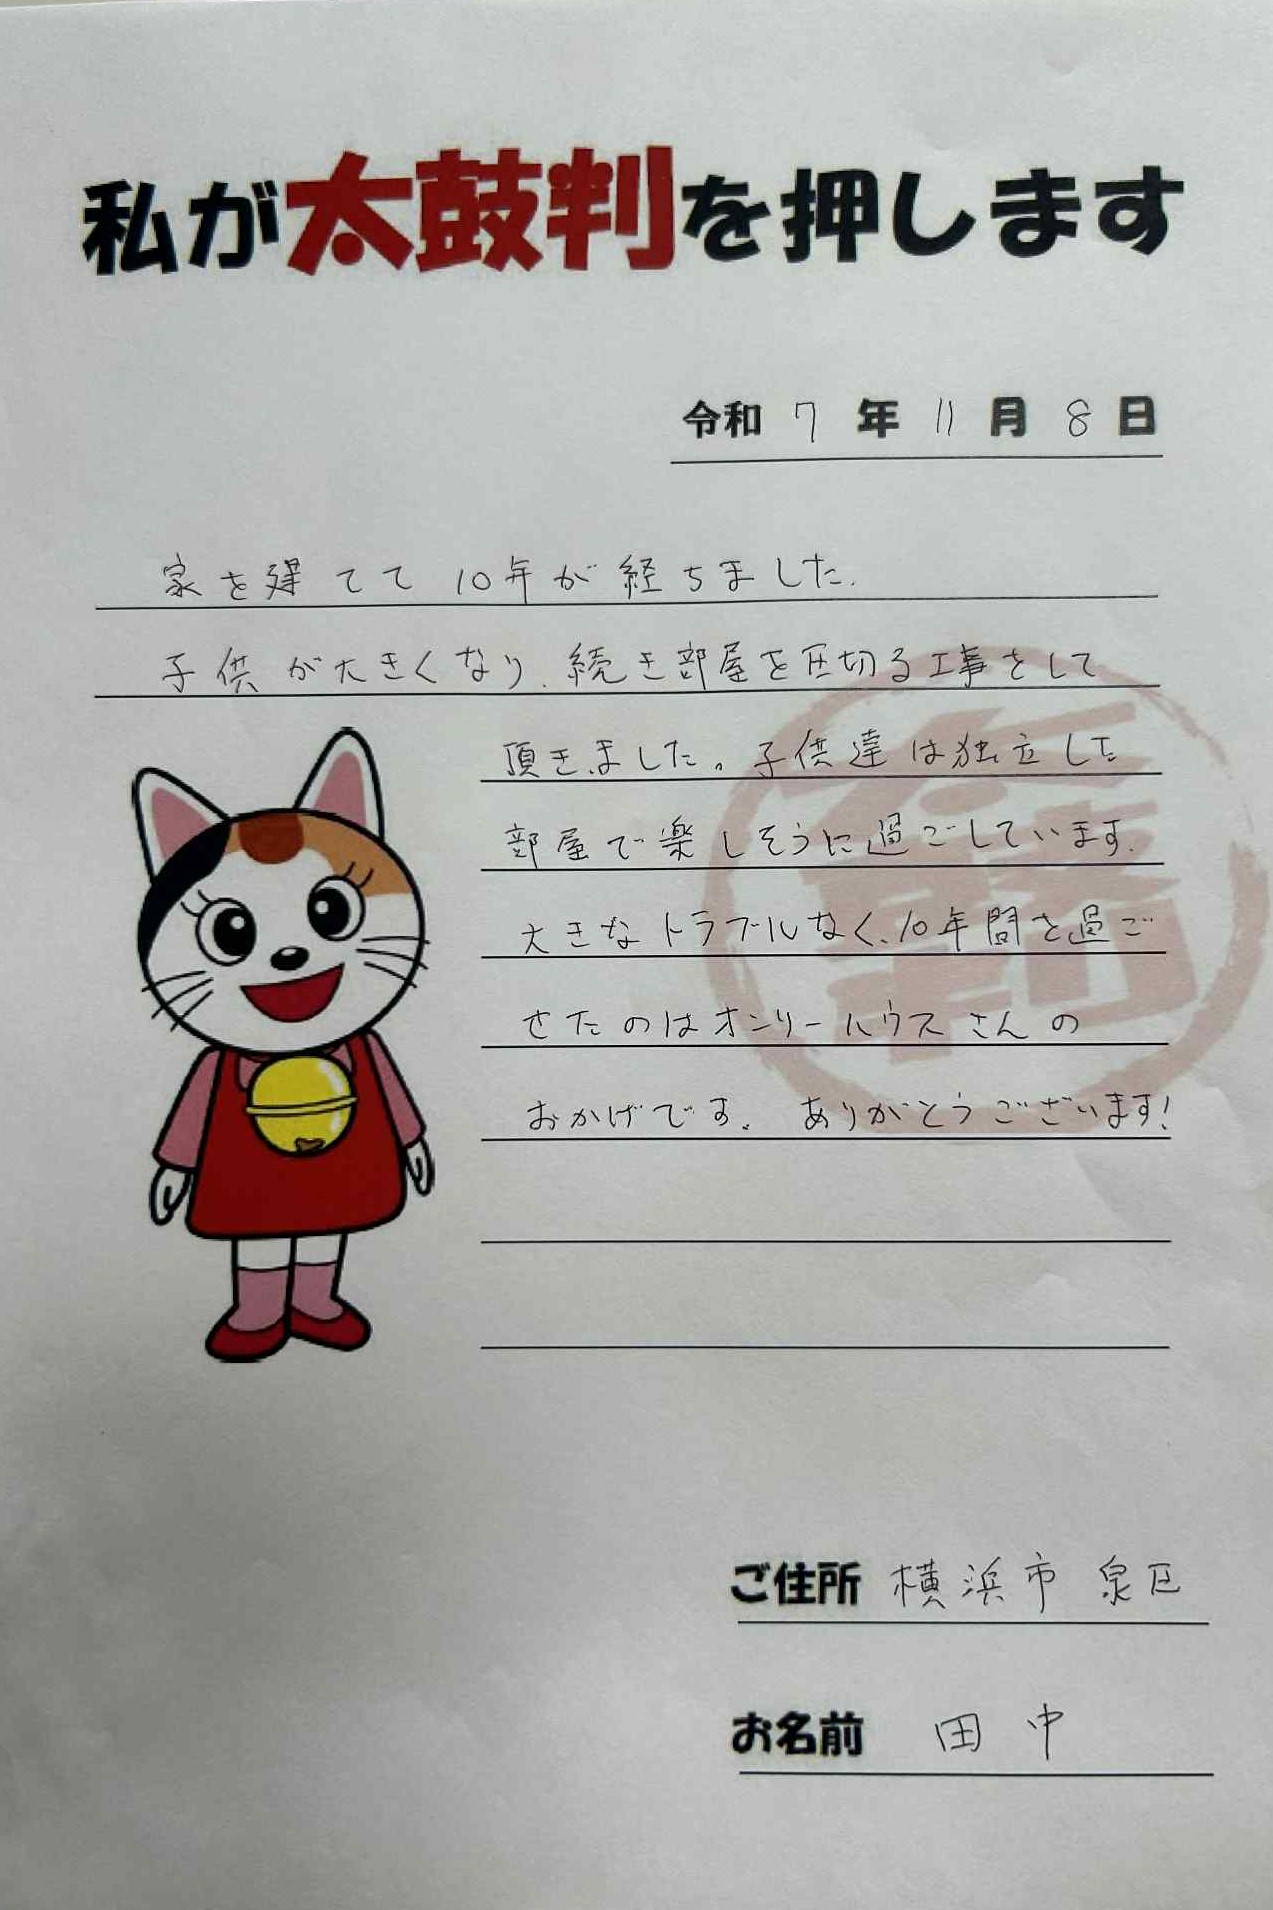 私が太鼓判を押します
令和 7 年 11 月 8 日
家を建てて10年が経ちました.
子供が大きくなり、続き部屋を区切る工事をして
頂きました。子供達は独立した
部屋で楽しそうに過ごしています.
大きなトラブルなく、10年間を過ご
せたのはオンリーハウスさんの
おかげです. ありがとうございます!
ご住所 横浜市 泉区
お名前 田中